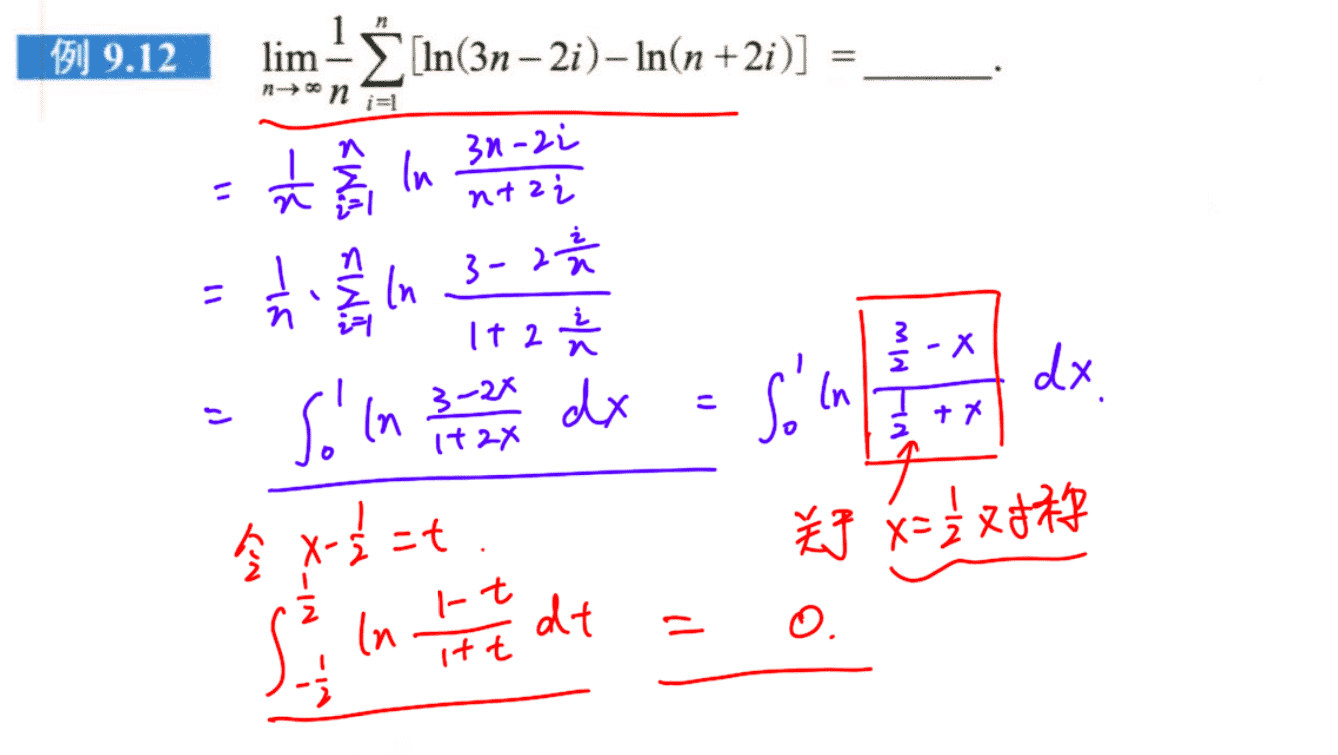 例 9.12 lim_{n→∞} \frac{1}{n} \sum_{i=1}^{n} [ln(3n-2i)-ln(n+2i)] = ______.
= \frac{1}{n} \sum_{i=1}^{n} ln \frac{3n-2i}{n+2i}
= \frac{1}{n} · \sum_{i=1}^{n} ln \frac{3-2\frac{i}{n}}{1+2\frac{i}{n}}
= \int_0^1 ln \frac{3-2x}{1+2x} dx = \int_0^1 ln \frac{\frac{3}{2}-x}{\frac{1}{2}+x} dx.
令 x-\frac{1}{2}=t. 关于 x=\frac{1}{2}对称
\int_{-\frac{1}{2}}^{\frac{1}{2}} ln \frac{1-t}{1+t} dt = 0.